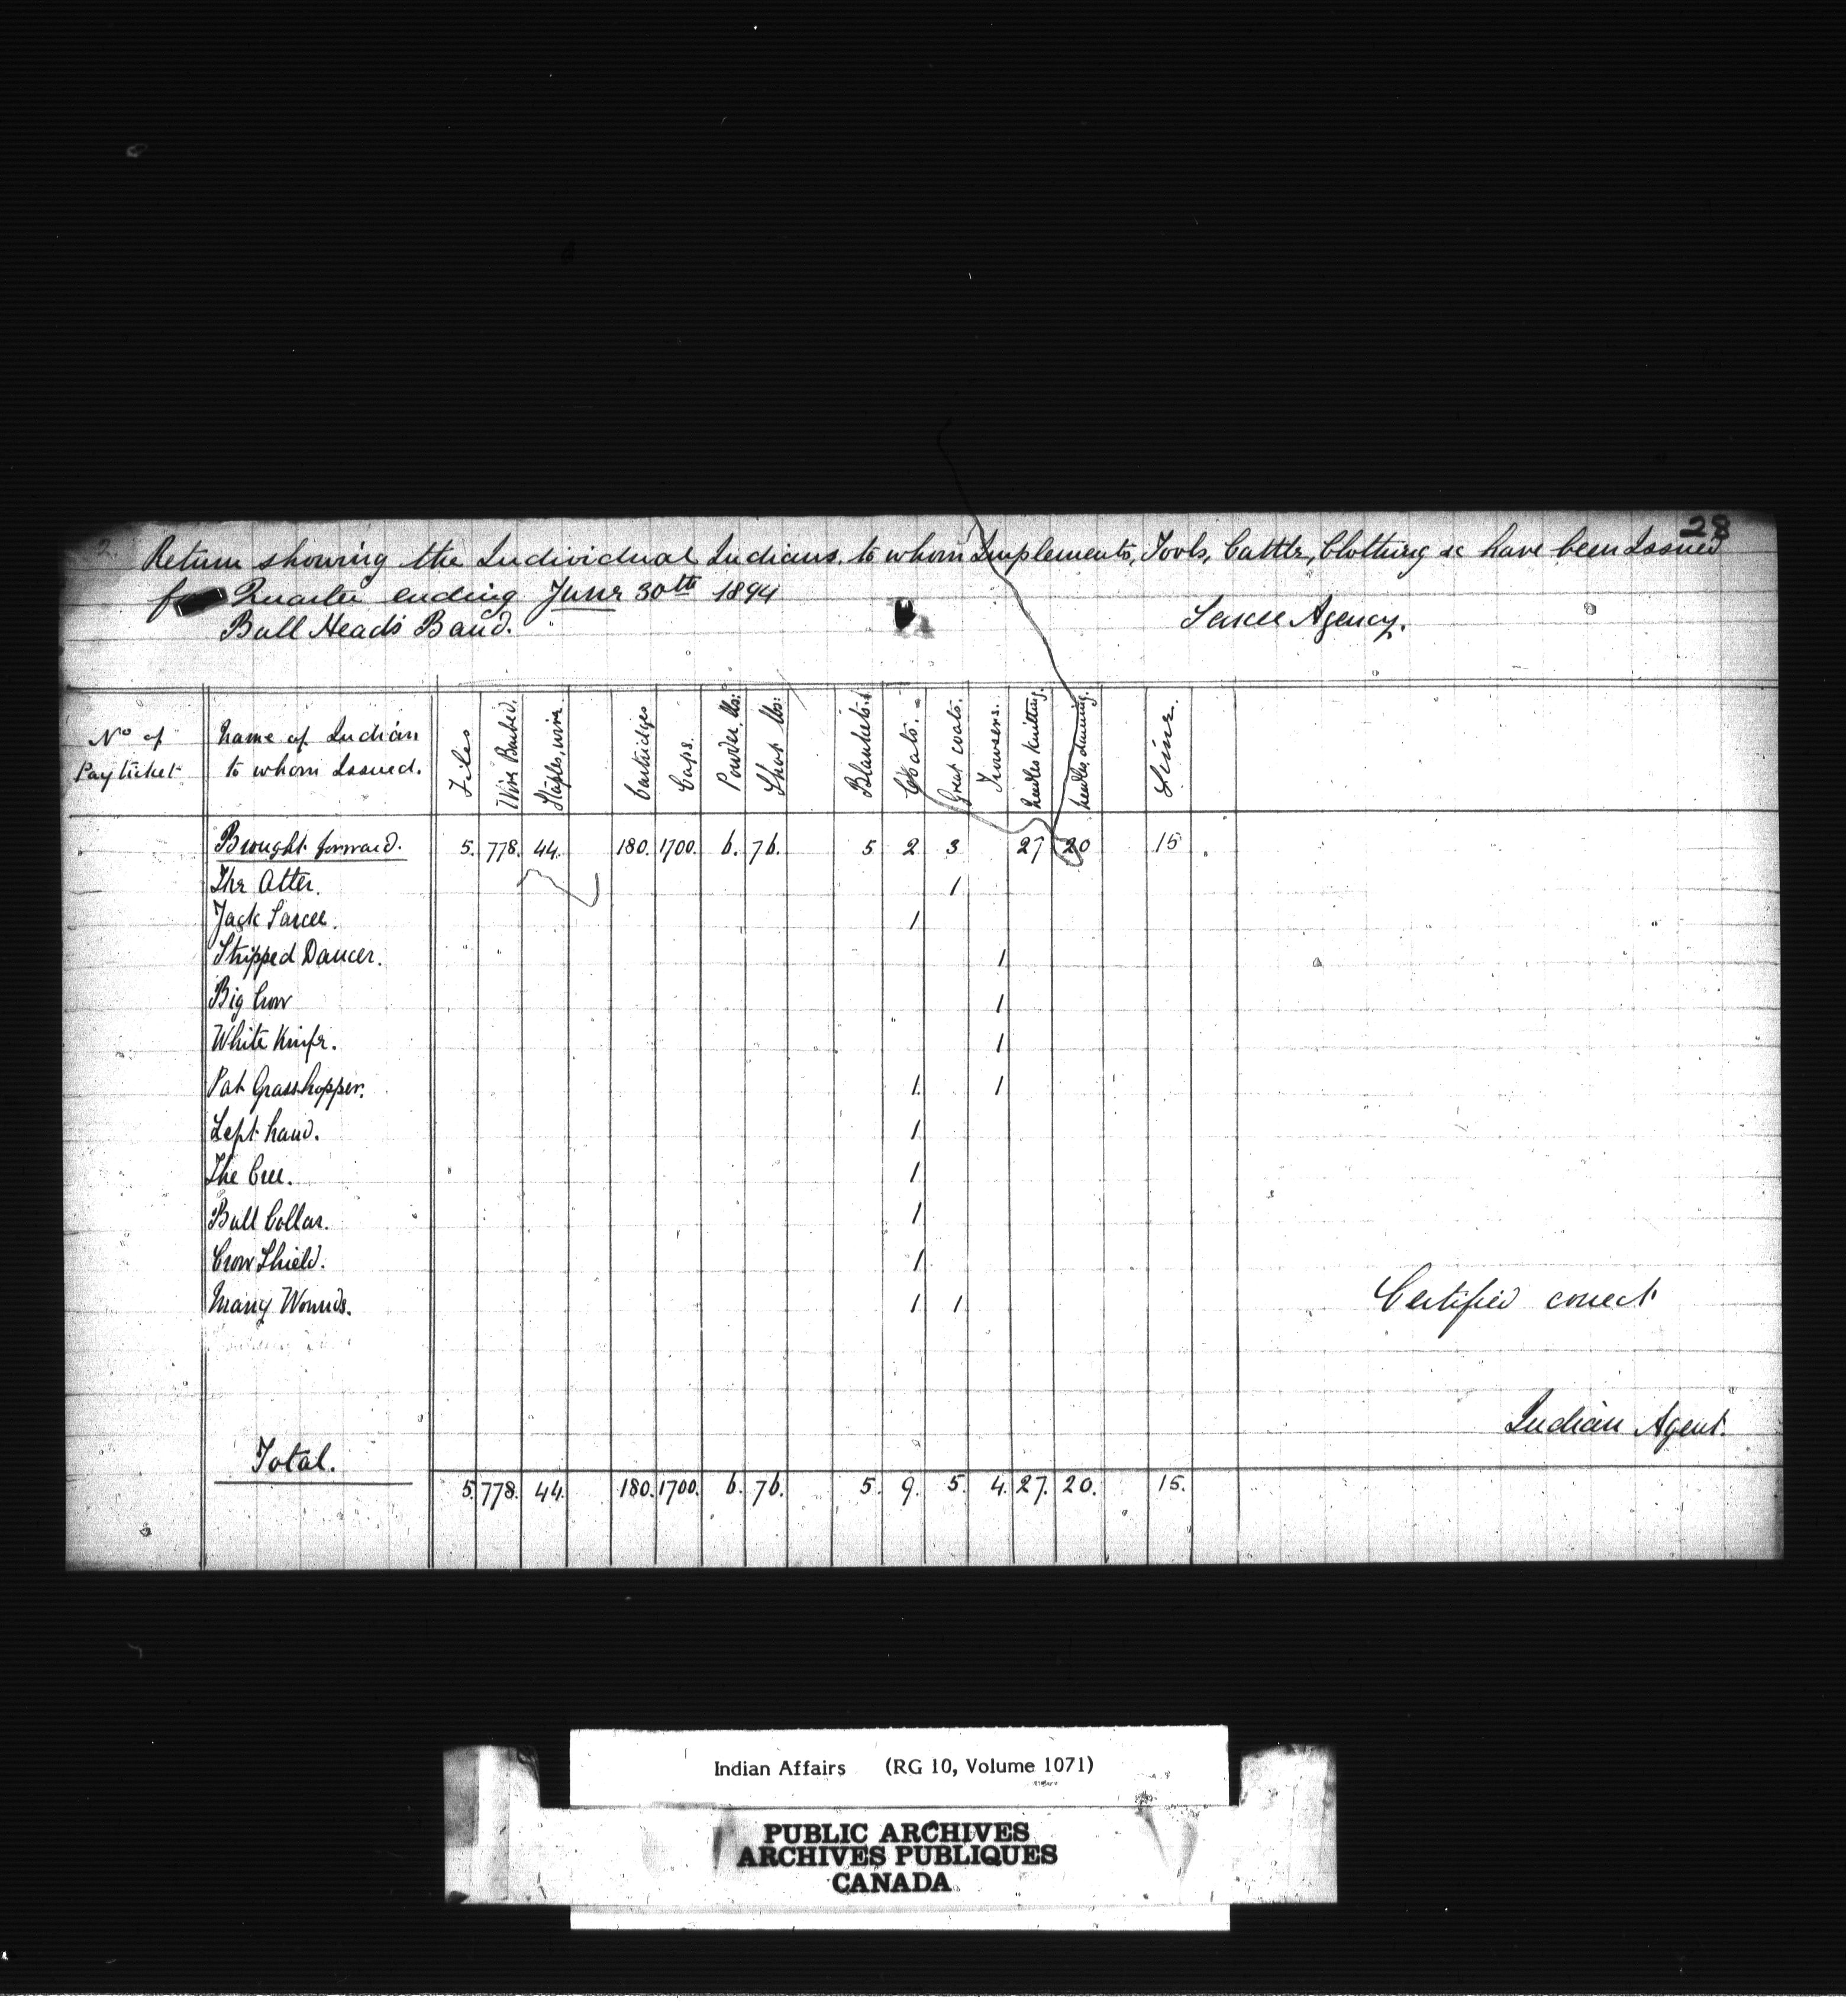 28
2. Return showing the Individual Indians to whom Implements, Tools, Cattle, Clothing &c have been Issued
for Quarter ending June 30th 1894
Bull Head's Band. Sarcee Agency.
No of Pay ticket Name of Indian to whom Issued. Files Wire Barbed. Staples, wire Cartridges Caps. Powder, lbs: Shot lbs: Blankets. Coats. Great coats. Trowsers. needles Knitting. needles, darning. Twine.
Brought forward. 5. 778. 44. 180. 1700. 6. 76. 5 2 3 27 20 15
The Otter. 1
Jack Sarcee. 1
Stripped Dancer. 1
Big Crow 1
White Knife. 1
Pat Grasshopper. 1. 1
Left hand. 1
The Cree. 1
Bull Collar. 1
Crow Shield. 1
Many Wounds. 1 1
Certified correct
Indian Agent.
Total. 5. 778. 44. 180. 1700. 6. 76. 5. 9. 5. 4. 27. 20. 15.
Indian Affairs (RG 10, Volume 1071)
PUBLIC ARCHIVES
ARCHIVES PUBLIQUES
CANADA